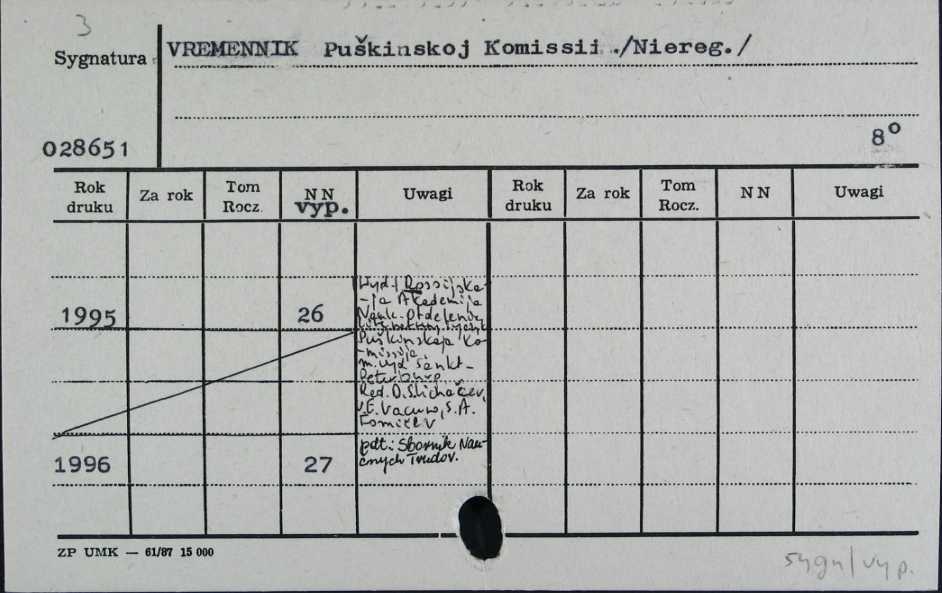 3
Sygnatura
VREMENNIK Puškinskoj Komissii ./Niereg./
028651
8º
Rok druku
Za rok
Tom Rocz.
NN vyp.
Uwagi
Rok druku
Za rok
Tom Rocz.
NN
Uwagi
1995
26
Wyd.: Rossijska-
-ja Akademija
Nauk. Otdelenie
Puškinskaja Ko-
-missija.
m.wyd. Sankt-
Peterburg
Red. D.S. Lichačev,
V.E. Vacuro, S.A.
Fomičev
1996
27
pdt.: Sbornik Nau-
čnych Trudov.
ZP UMK — 61/87 15 000
sygn/vyp.